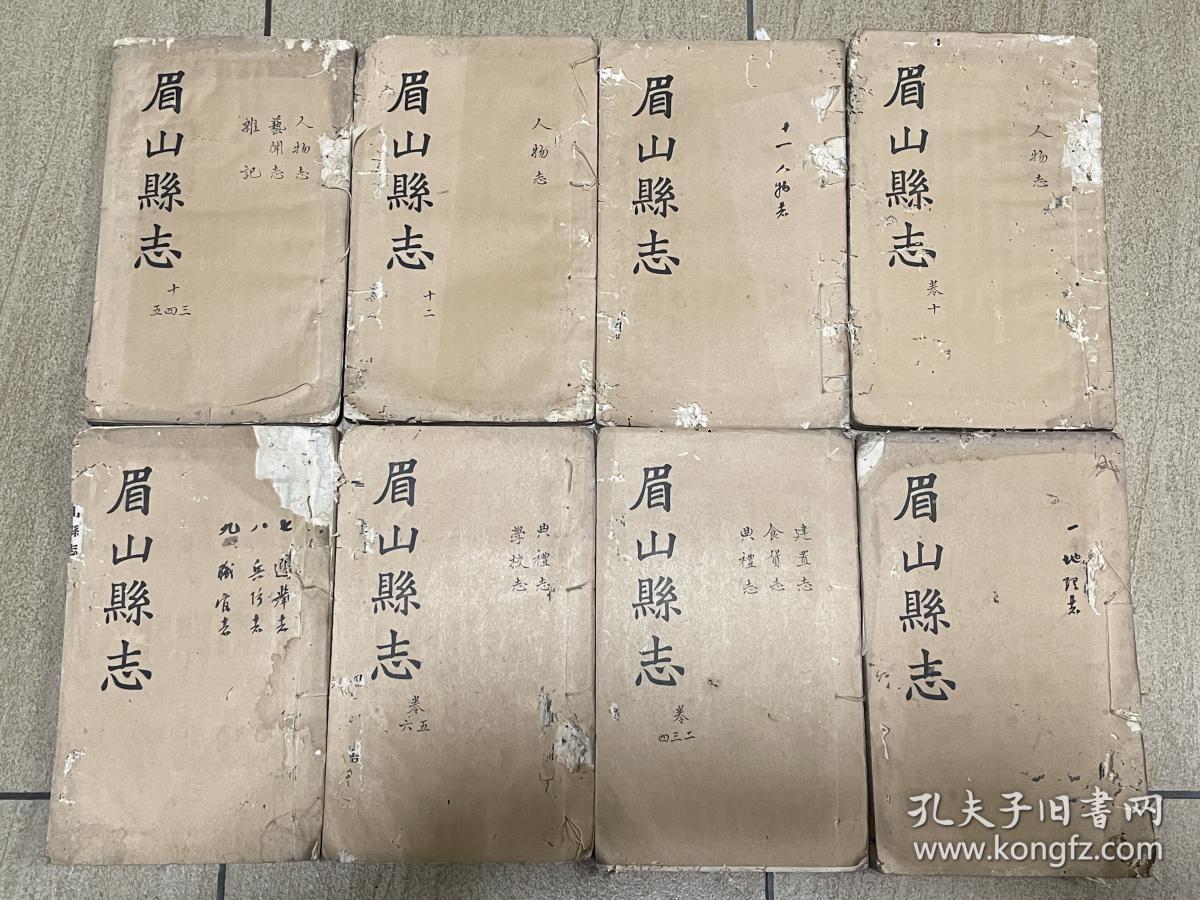 眉山縣志
人物志
藝聞志
雜記
十
三四五
眉山縣志
人物志
十二
眉山縣志
十一人物志
眉山縣志
人物志
卷十
眉山縣志
七 選舉志
八 兵防志
九 職官志
山縣志
眉山縣志
典禮志
學校志
卷
五六
眉山縣志
建置志
食貨志
典禮志
卷
二三四
眉山縣志
一地理志
孔夫子旧書网
www.kongfz.com